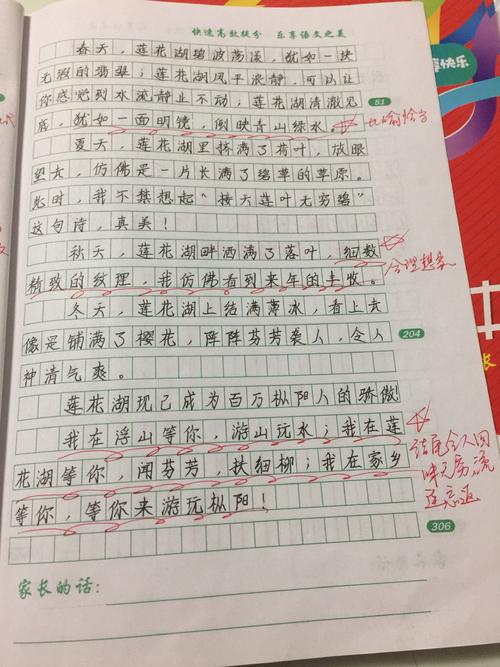 快速高效提分 乐享语文之美
春天，莲花湖碧波荡漾，犹如一块
无瑕的翡翠；莲花湖风平浪静，可以让
你感觉到水流静止不动；莲花湖清澈见
81
底，犹如一面明镜，倒映青山绿水。
比喻恰当
夏天，莲花湖里挤满了荷叶，放眼
望去，仿佛是一片长满了绿草的草原。
此时，我不禁想起“接天莲叶无穷碧”
这句诗，真美！
秋天，莲花湖畔洒满了落叶，细数
精致的纹理，我仿佛看到来年的丰收。
合理想象
冬天，莲花湖上结满薄冰，看上去
像是铺满了樱花，阵阵芬芳袭人，令人
204
神清气爽。
莲花湖现已成为百万枞阳人的骄傲
我在浮山等你，游山玩水；我在莲
花湖等你，闻芬芳，扶细柳；我在家乡
等你，等你来游玩枞阳！
结尾令人回
味无穷，流
连忘返
306
家长的话：
乐